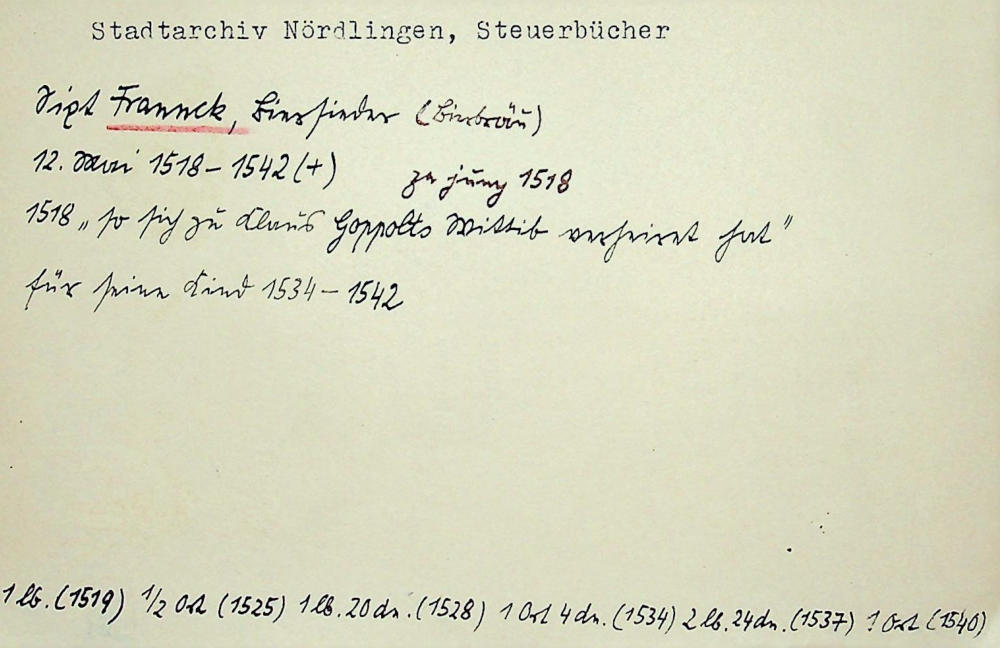 Stadtarchiv Nördlingen, Steuerbücher
Sixt Frannck, Biersieder (Bierbräu)
12. Mai 1518 – 1542 (+) za jung 1518
1518 „so sich zu Claus Goppolts Wittib verheiret hat"
für seine Kind 1534 – 1542
1 lb. (1519) 1/2 Ort (1525) 1 lb. 20 dn. (1528) 1 Ort 4 dn. (1534) 2 lb. 24 dn. (1537) 1 Ort (1540)